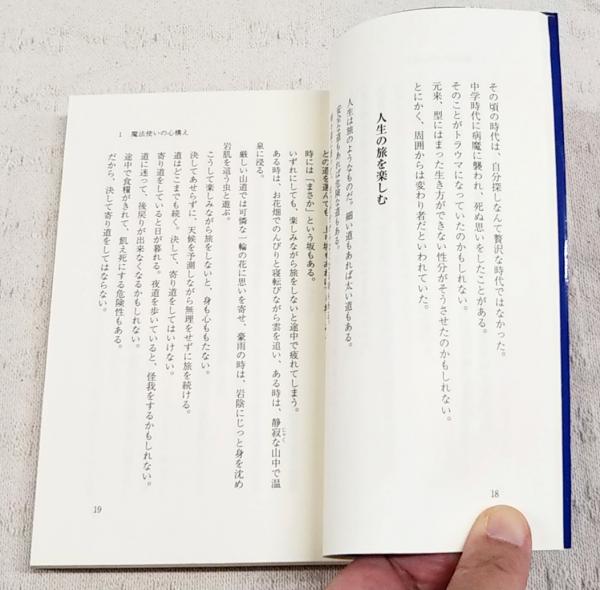 その頃の時代は、自分探しなんて贅沢な時代ではなかった。
中学時代に病魔に襲われ、死ぬ思いをしたことがある。
そのことがトラウマになっていたのかもしれない。
元来、型にはまった生き方ができない性分がそうさせたのかもしれない。
とにかく、周囲からは変わり者だといわれていた。
人生の旅を楽しむ
人生は旅のようなものだ。細い道もあれば太い道もある。
安全な道もあれば危険な道もある。
18
どの道を選んでも、上り坂もあれば
時には「まさか」という坂もある。
いずれにしても、楽しみながら旅をしないと途中で疲れてしまう。
ある時は、お花畑でのんびりと寝転びながら雲を追い、ある時は、静寂な山中で温
じゃく
泉に浸る。
厳しい山道では可憐な一輪の花に思いを寄せ、豪雨の時は、岩陰にじっと身を沈め
岩肌を這う虫と遊ぶ。
こうして楽しみながら旅をしないと、身も心ももたない。
決してあせらずに、天候を予測しながら無理をせずに旅を続ける。
道はどこまでも続く。決して、寄り道をしてはいけない。
寄り道をしていると日が暮れる。夜道を歩いていると、怪我をするかもしれない。
道に迷って、後戻りが出来なくなるかもしれない。
途中で食糧がきれて、飢え死にする危険性もある。
だから、決して寄り道をしてはならない。
1 魔法使いの心構え
19